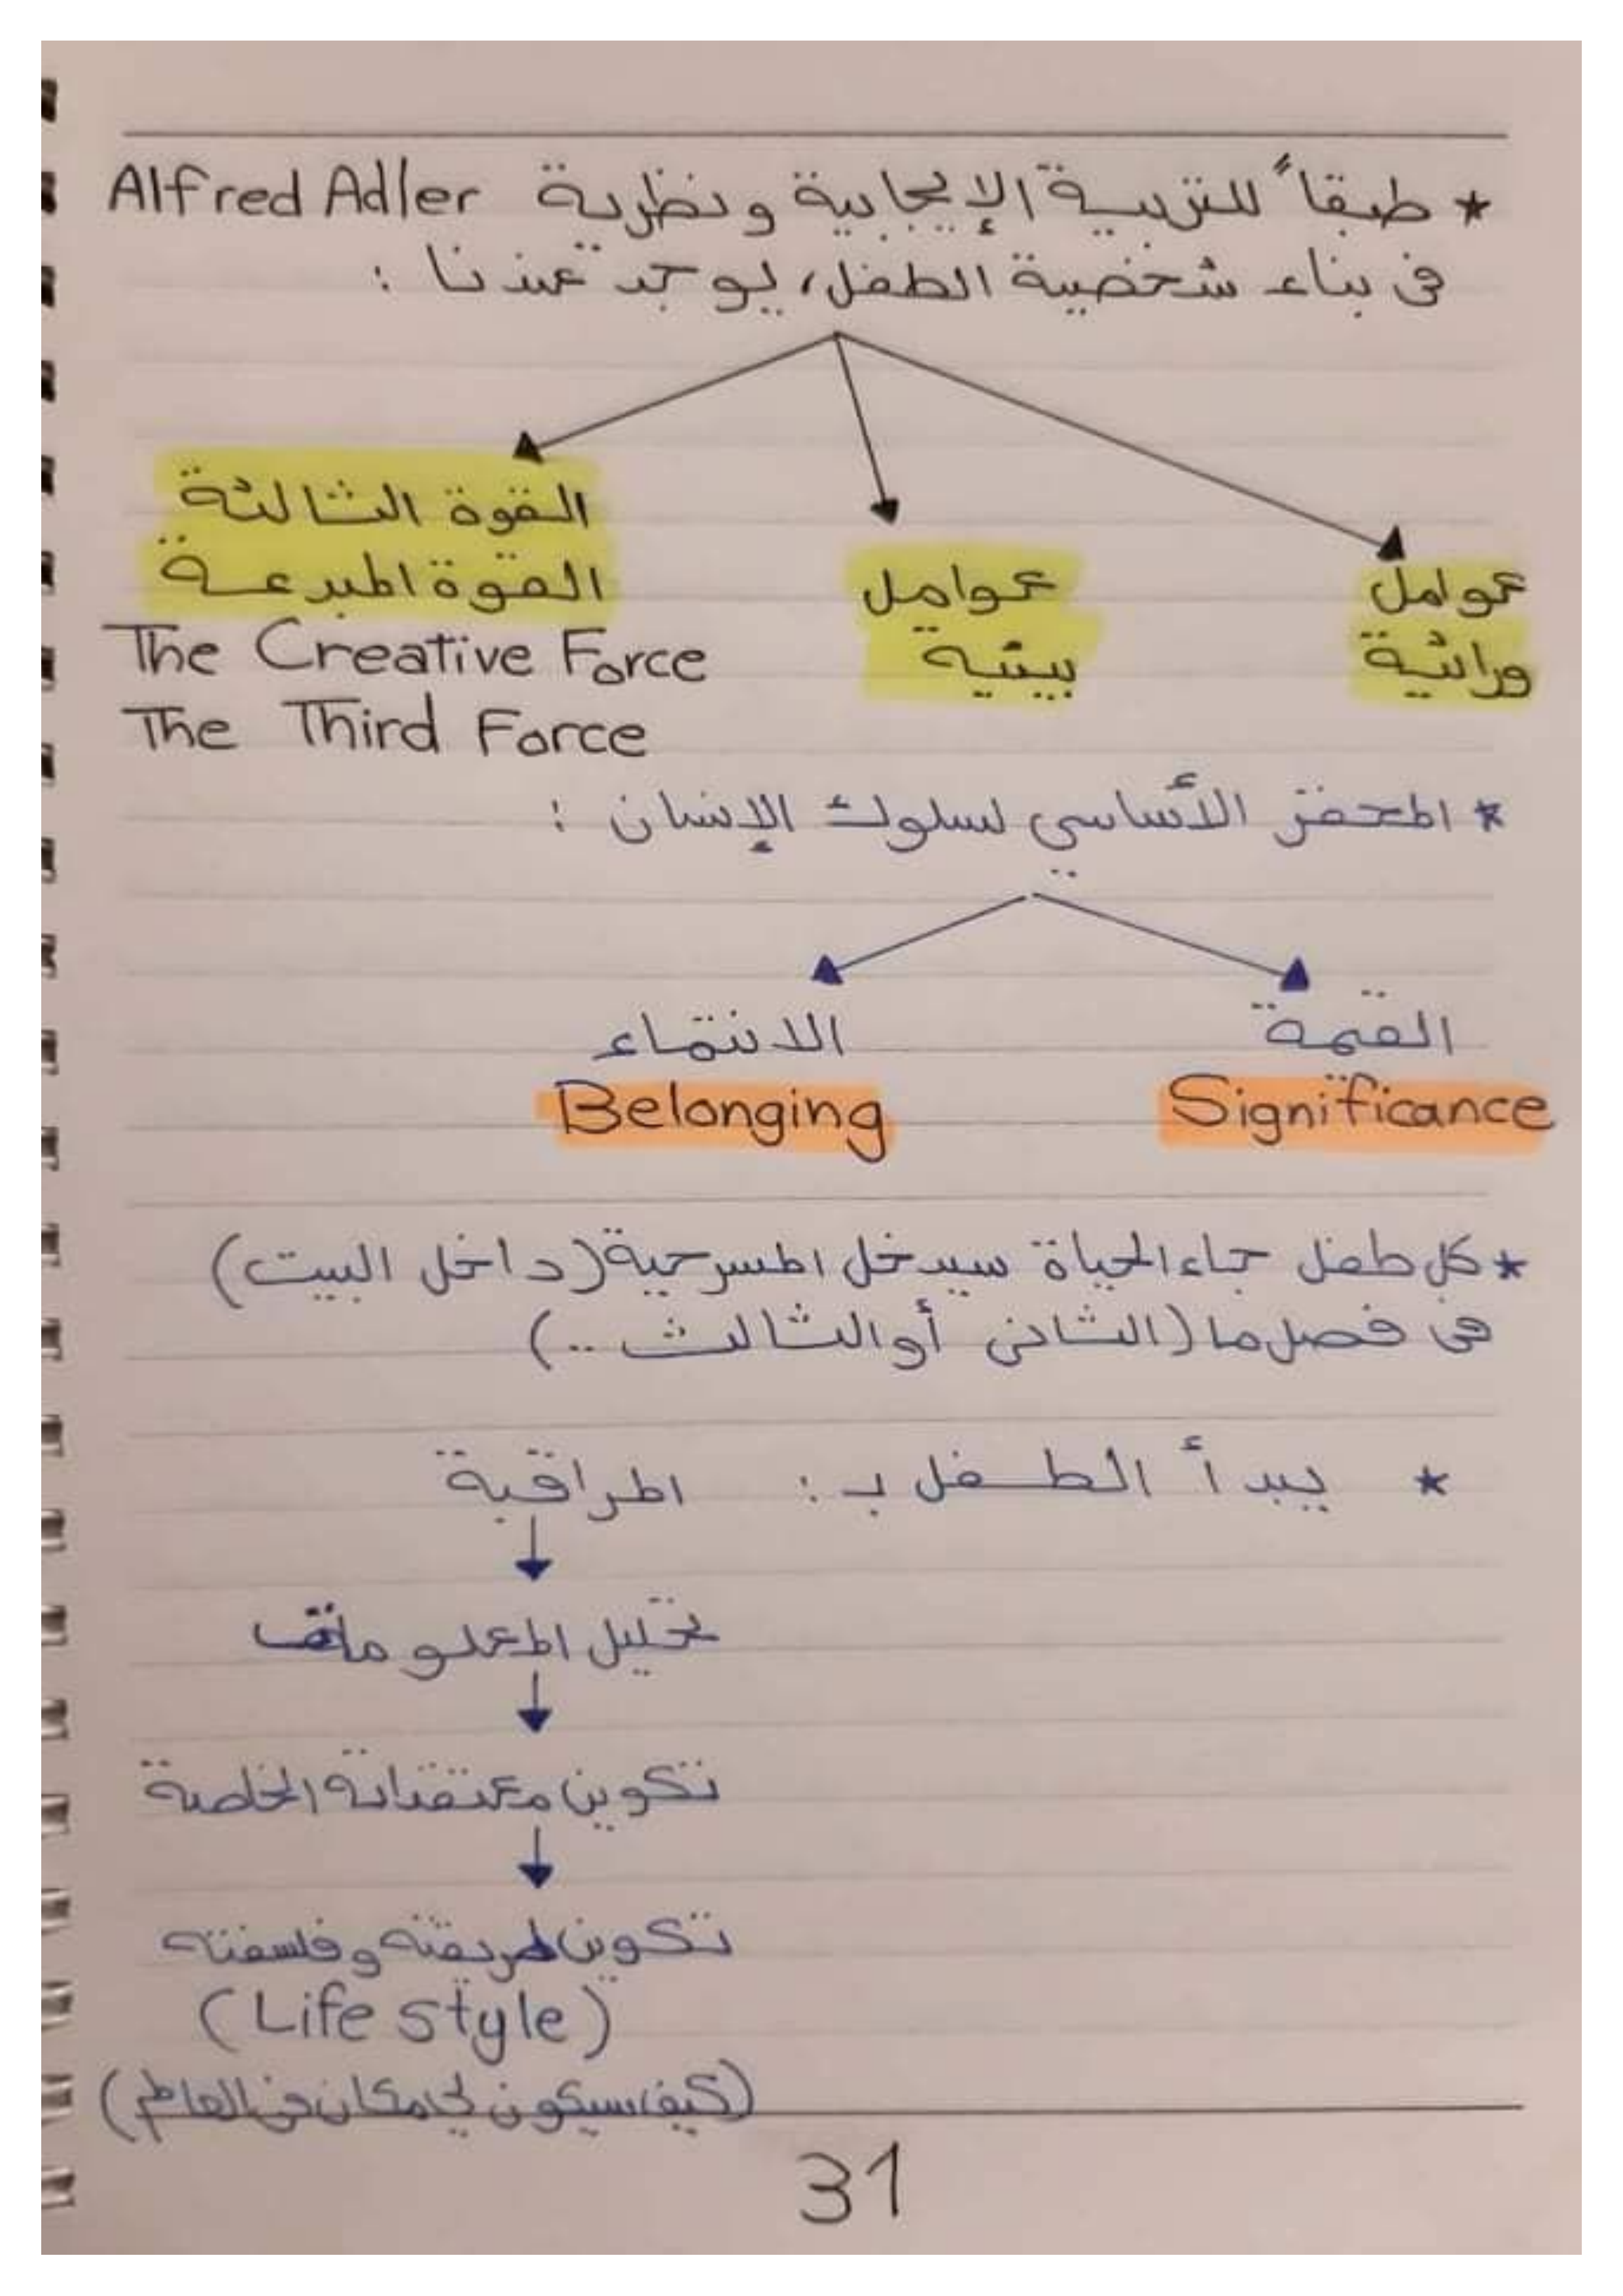 * طبقاً للتربية الإيجابية ونظرية Alfred Adler
فى بناء شخصية الطفل، يوجد عندنا :
عوامل
وراثية
عوامل
بيئية
القوة الثالثة
القوة المبدعة
The Creative Force
The Third Force
* المحفز الأساسي لسلوك الإنسان :
القيمة
Significance
الانتماء
Belonging
* كل طفل جاء الحياة سيدخل المسرحية (داخل البيت)
فى فصل ما (الثانى أو الثالث ..)
* يبدأ الطفل بـ : المراقبة
تحليل المعلومات
تكوين معتقداته الخاصة
تكوين طريقته وفلسفته
(Life style)
(كيف سيكون لى مكان فى العالم)
31